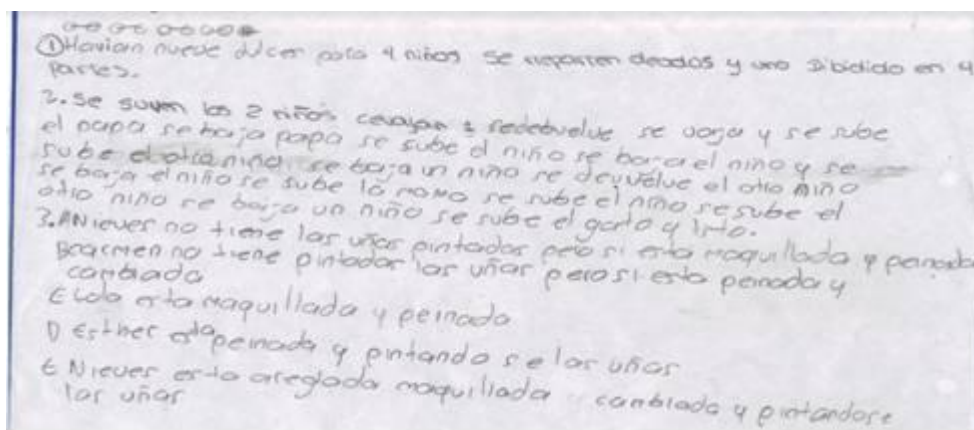 ① Havian nueve dulcer para 4 niños se reparten deados y uno sibidido en 4
partes.
2. Se suven los 2 niños se debuelve se vaja y se sube
el papa se baja papa se sube el niño se baja el niño y se
sube el otro niño se baja un niño se deyvuelve el otro niño
se baja el niño se sube la mama se sube el niño se sube el
otro niño se baija un niño se sube el gato y lrto.
3. A Niever no tiene lar uñar pintadar pero si esta maquillada y peinada
B carmen no tiene pintadar lar uñar pero si esta peinada y
canbiada
esta maquillada y peinada
D Esther esta peinada y pintando se lar uñar
E Niever esta areglada maquillada canbiada y pintandose
lar uñar